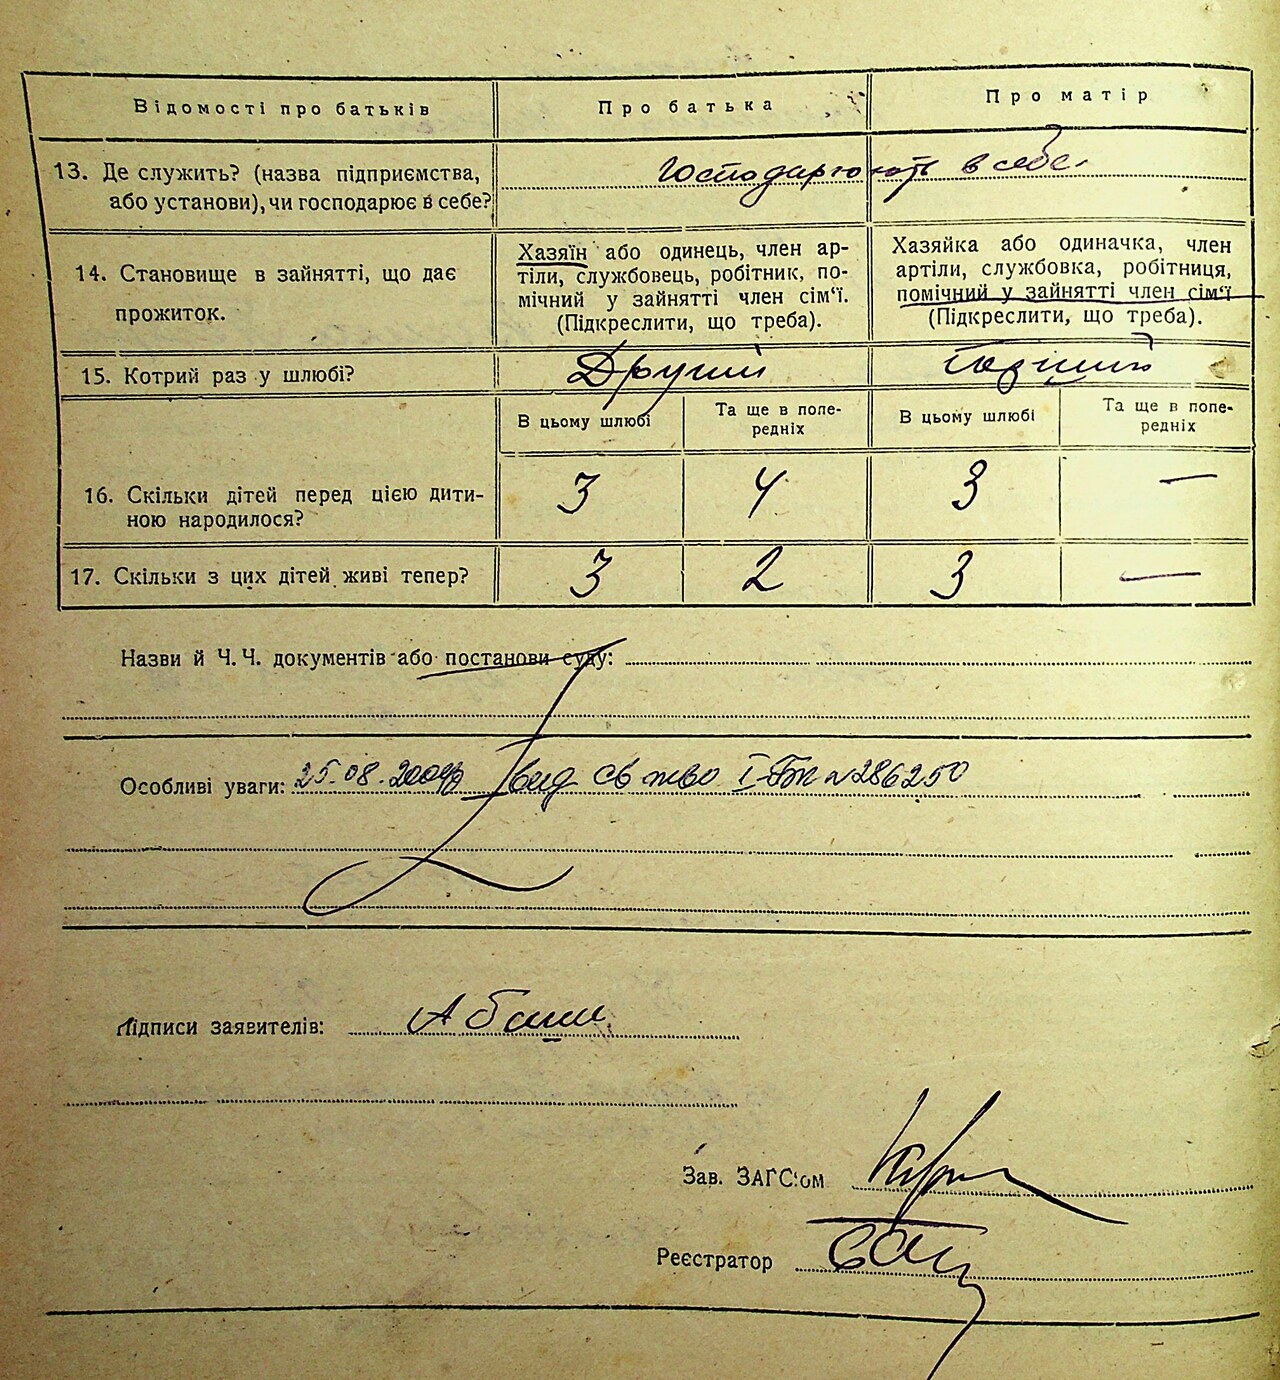 Відомості про батьків
Про батька
Про матір
13. Де служить? (назва підприємства,
або установи), чи господарює в себе?
Господарюють в себе.
14. Становище в зайнятті, що дає
прожиток.
Хазяїн або одинець, член ар-
тіли, службовець, робітник, по-
мічний у зайнятті член сім'ї.
(Підкреслити, що треба).
Хазяйка або одиначка, член
артіли, службовка, робітниця,
помічний у зайнятті член сім'ї
(Підкреслити, що треба).
15. Котрий раз у шлюбі?
Другий
Перший
В цьому шлюбі
Та ще в попе-
редніх
В цьому шлюбі
Та ще в попе-
редніх
16. Скільки дітей перед цією дити-
ною народилося?
3
4
3
—
17. Скільки з цих дітей живі тепер?
3
2
3
—
Назви й Ч. Ч. документів або постанови суду:
Особливі уваги: 25.08.2009р вид св-тво І-БК №286250
Підписи заявителів:
Зав. ЗАГС'ом
Реєстратор